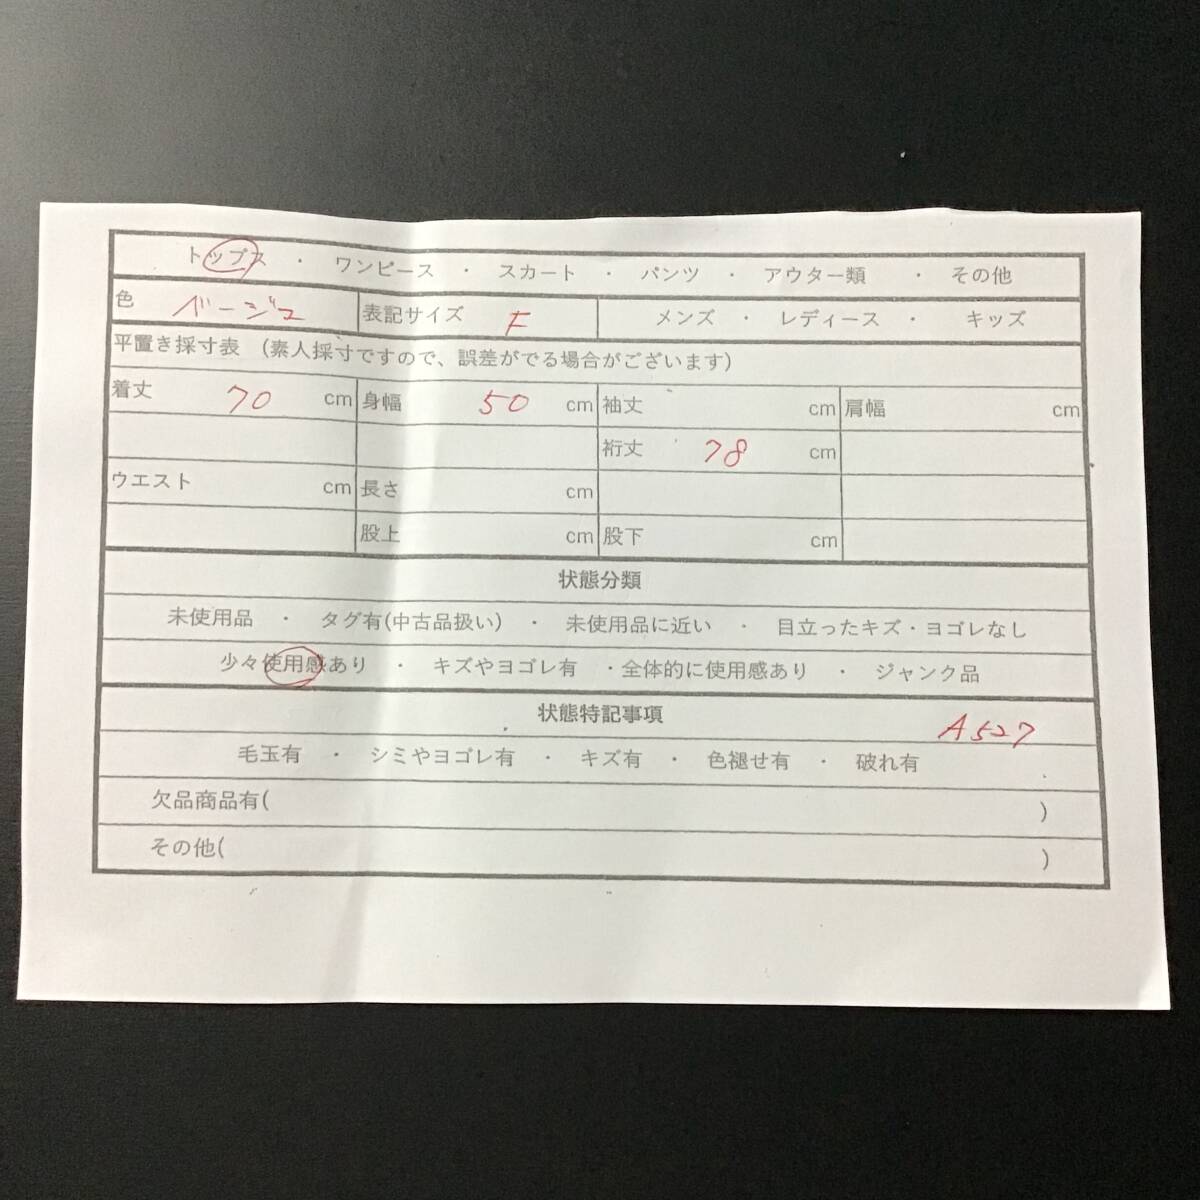 トップス ・ ワンピース ・ スカート ・ パンツ ・ アウター類 ・ その他
色 ベージュ 表記サイズ F メンズ ・ レディース ・ キッズ
平置き採寸表 (素人採寸ですので、誤差がでる場合がございます)
着丈 70 cm 身幅 50 cm 袖丈 cm 肩幅 cm
裄丈 78 cm
ウエスト cm 長さ cm
股上 cm 股下 cm
状態分類
未使用品 ・ タグ有(中古品扱い) ・ 未使用品に近い ・ 目立ったキズ・ヨゴレなし
少々使用感あり ・ キズやヨゴレ有 ・全体的に使用感あり ・ ジャンク品
状態特記事項 A527
毛玉有 ・ シミやヨゴレ有 ・ キズ有 ・ 色褪せ有 ・ 破れ有
欠品商品有( )
その他( )